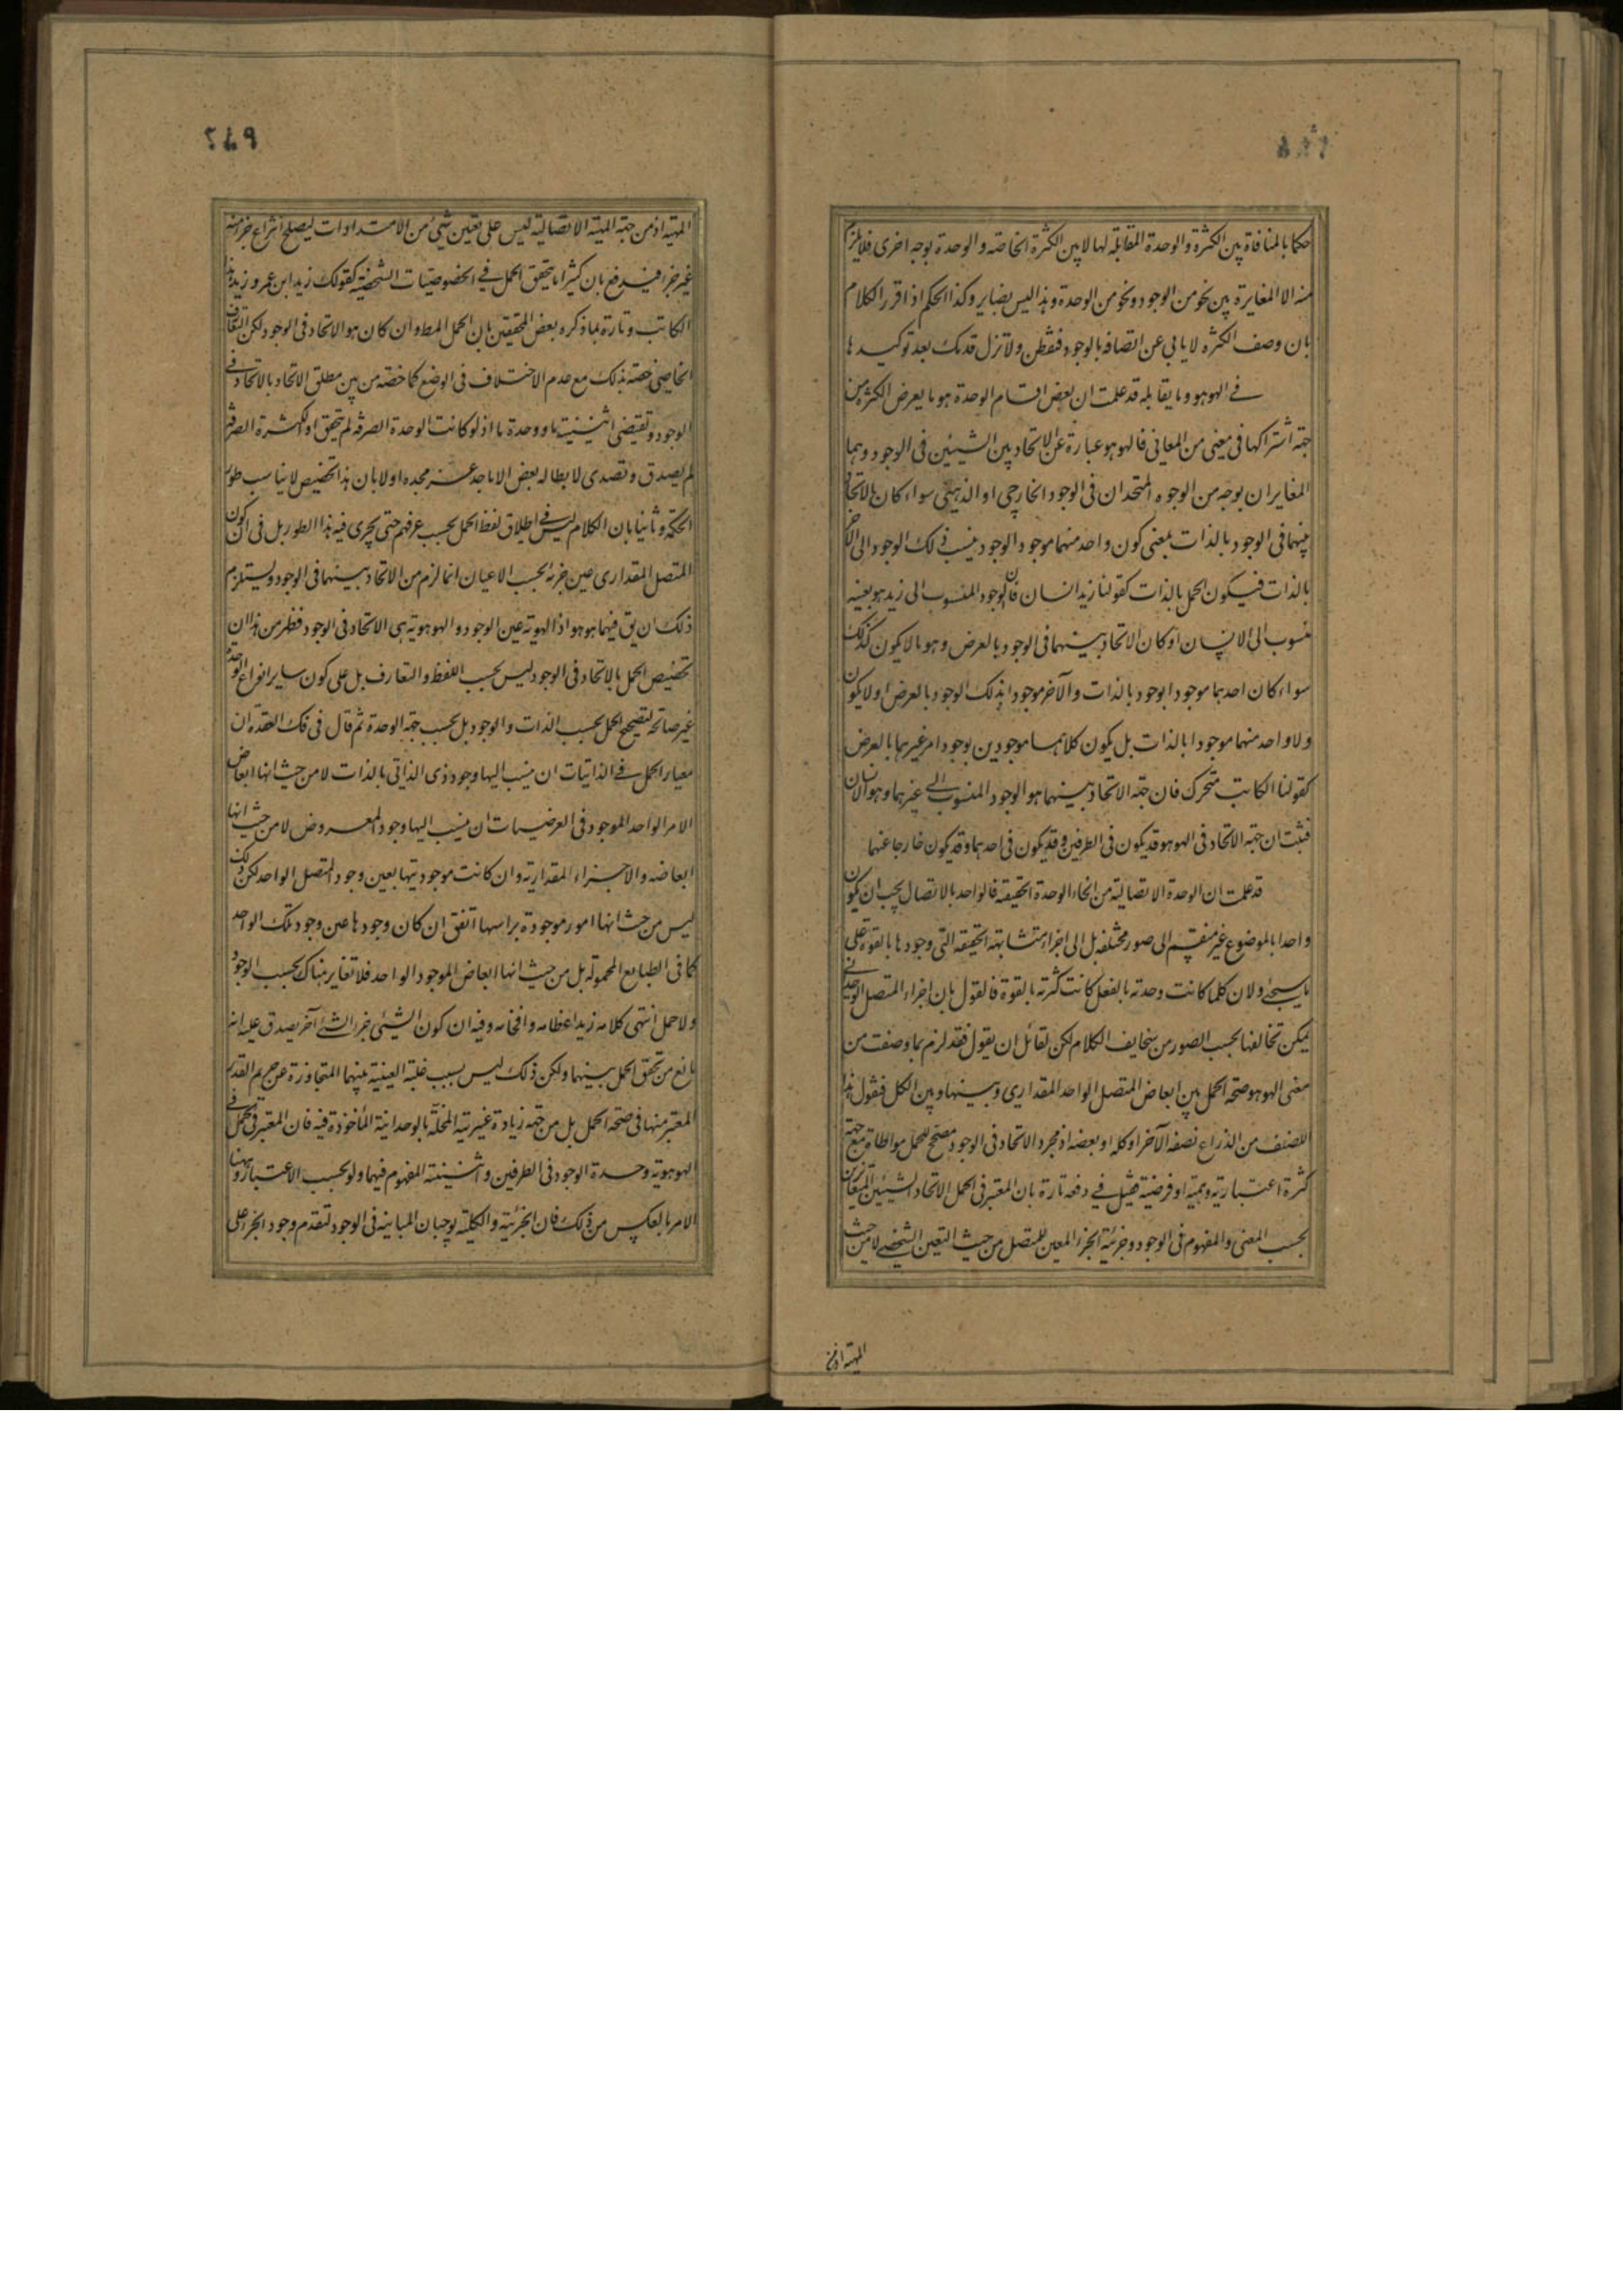 حكما بالمنافاة بين الكثرة والوحدة المقابلة لها لا بين الكثرة الخاصة والوحدة بوجه اخرى فلا يلزم
منه الا المغايرة بين نحو من الوجود ونحو من الوحدة وهذا ليس بضاير وكذا الحكم اذا قرر الكلام
بان وصف الكثرة لا يابى عن اتصافه بالوجود فتفطن ولا تزل قدمك بعد توكيدها
فى الهوهو وما يقابله قد علمت ان بعض اقسام الوحدة هو ما يعرض الكثرة من
جهة اشتراكها فى معنى من المعانى فالهوهو عبارة عن الاتحاد بين الشيئين فى الوجود وهما
المتغايران بوجه من الوجوه المتحدان فى الوجود الخارجى او الذهنى سواء كان الاتحاد
بينهما فى الوجود بالذات بمعنى كون واحد منهما موجودا بوجود ينسب ذلك الوجود الى الآخر
بالذات فيكون الحمل بالذات كقولنا زيد انسان فان الوجود المنسوب الى زيد هو بعينه
منسوب الى الانسان او كان الاتحاد بينهما فى الوجود بالعرض وهو ما لا يكون كذلك
سواء كان احدهما موجودا بوجود بالذات والآخر موجودا بذلك الوجود بالعرض او لا يكون
ولا واحد منهما موجودا بالذات بل يكون كلاهما موجودين بوجود امر غيرهما بالعرض
كقولنا الكاتب متحرك فان جهة الاتحاد بينهما هو الوجود المنسوب الى غيرهما وهو الانسان
فثبت ان جهة الاتحاد فى الهوهو قد يكون فى الطرفين وقد يكون فى احدهما وقد يكون خارجا عنهما
قد علمت ان الوحدة الاتصالية من انحاء الوحدة الحقيقة فالواحد بالاتصال يجب ان يكون
واحدا بالموضوع غير منقسم الى صور مختلفه بل الى اجزاء متشابهة الحقيقه التى وجودها بالقوة على
ما سيجئ ولان كلما كانت وحدته بالفعل كانت كثرته بالقوة فالقول بان اجزاء المتصل الوحدانى
يمكن تخالفها بحسب الصور من سخايف الكلام لكن لقائل ان يقول فقد لزم بما وصفت من
معنى الهوهو صحة الحمل بين ابعاض المتصل الواحد المقدارى وبينها وبين الكل فنقول هذا
النصف من الذراع نصفه الآخر او كله او بعضه اذ مجرد الاتحاد فى الوجود مصحح للحمل مواطاة مع جهة
كثرة اعتبارية وهمية او فرضية فقيل فى دفعه تارة بان المعتبر فى الحمل الاتحاد الشيئين المتغايرين
بحسب المعنى والمفهوم فى الوجود وجزئية الجزء المعين للمتصل من حيث التعين الشخصى لا من حيث
المهية اذ من
٢٤٩
المهية اذ من جهة المهية الاتصالية ليس على تعين شئ من الامتدادات ليصلح انتزاع جزء منه
غير جزء فيدفع بان كثيرا ما يتحقق الحمل فى الخصوصيات الشخصية كقولك زيد ابن عمرو وزيد هذا
الكاتب وتارة بما ذكره بعض المحققين بان الحمل المطو ان كان هو الاتحاد فى الوجود لكن التعارف
الخاصى خصه بذلك مع عدم الاختلاف فى الوضع كما خصه من بين مطلق الاتحاد بالاتحاد فى
الوجود وتقتضى اثنينية ما ووحدة ما اذ لو كانت الوحدة الصرفة لم يتحقق او الكثرة الصرفة
لم يصدق وتصدى لابطاله بعض الاماجد عز مجده اولا بان هذا تخصيص لا يناسب طور
الحكمة وثانيا بان الكلام ليس فى اطلاق لفظ الحمل بحسب عرفهم حتى يجرى فيه هذا الطور بل فى ان كون
المتصل المقدارى عين جزئه بحسب الاعيان انما لزم من الاتحاد بينهما فى الوجود ويستلزم
ذلك ان يق فيهما هو هو اذ الهوية عين الوجود والهوهوية هى الاتحاد فى الوجود فظهر من هذا ان
تخصيص الحمل بالاتحاد فى الوجود ليس بحسب اللفظ والتعارف بل على كون ساير انواع الوحدة
غير صالحة لتصحيح الحمل بحسب الذات والوجود بل بحسب جهة الوحدة ثم قال فى فك العقدة ان
معيار الحمل فى الذاتيات ان ينسب اليها وجود ذى الذاتى بالذات لا من حيث انها ابعاض
الامر الواحد الموجود فى العرضيات ان ينسب اليها وجود المعروض لا من حيث انها
ابعاضه والاجزاء المقدارية وان كانت موجوديتها بعين وجود المتصل الواحد لكن ذلك
ليس من حيث انها امور موجودة براسها اتفق ان كان وجودها عين وجود تلك الواحد
كما فى الطبايع المحمولة بل من حيث انها ابعاض الموجود الواحد فلا تغاير هناك بحسب الوجود
ولا حمل انتهى كلامه زيد اعظامه وافخامه وفيه ان كون الشيئى جزء الشئ آخر يصدق عليه انه
مانع من تحقق الحمل بينهما ولكن ذلك ليس بسبب غلبة العينية بينهما المتجاوزة عن حريم القدر
المعتبر منها فى صحة الحمل بل من جهة زيادة غيرية المخلة بالوحدانية المأخوذة فيه فان المعتبر فى حمل
الهوهوية وحدة الوجود فى الطرفين واثنينية المفهوم فيهما ولو بحسب الاعتبار وهنا
الامر بالعكس من ذلك فان الجزئية والكلية يوجبان المباينة فى الوجود لتقدم وجود الجزء على